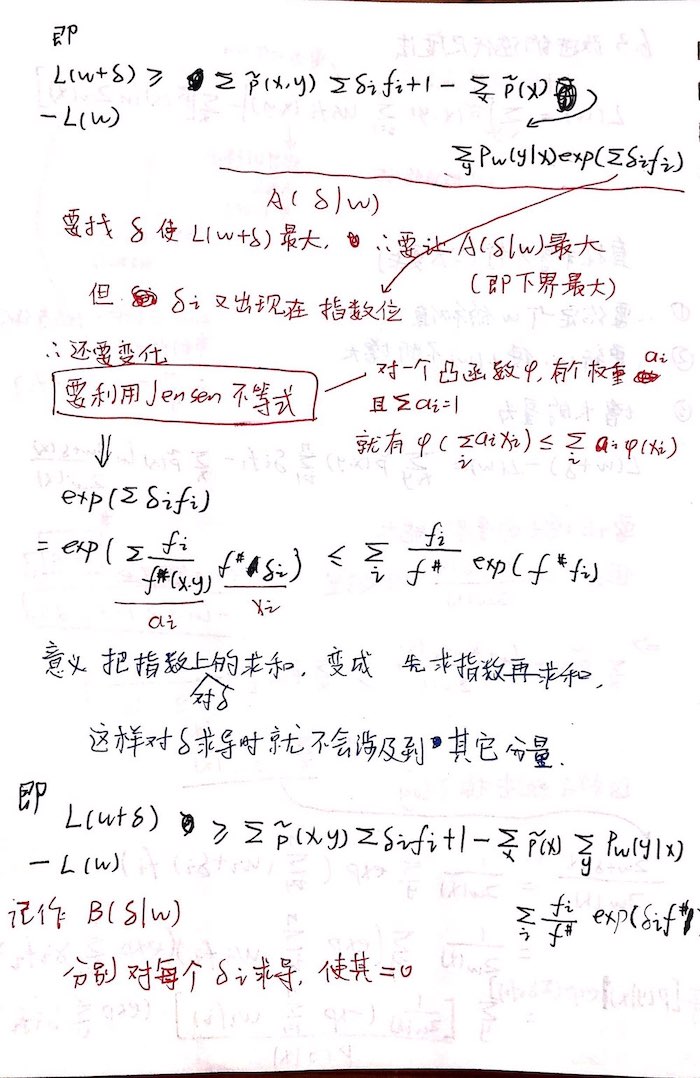 即
L(w+δ) ≥ Σ p̃(x,y) Σ δi fi + 1 - Σx p̃(x)
- L(w)
Σy Pw(y|x) exp(Σ δi fi)
A(δ|w)
要找 δ 使 L(w+δ) 最大, ∴要让 A(δ|w) 最大
(即下界最大)
但 δi 又出现在 指数位
∴还要变化
要利用 Jensen 不等式
对一个凸函数 φ, 有个权重 ai
且 Σ ai = 1
就有 φ(Σi ai xi) ≤ Σi ai φ(xi)
⇓
exp(Σ δi fi)
= exp(Σ fi/f#(x,y) f# δi) ≤ Σi fi/f# exp(f# fi)
ai xi
意义 把指数上的求和, 变成 先求指数再求和,
对δ
这样对 δ 求导时就不会涉及到 其它分量.
即
L(w+δ) ≥ Σ p̃(x,y) Σ δi fi + 1 - Σx p̃(x) Σy Pw(y|x)
- L(w)
Σi fi/f# exp(δi f#)
记作 B(δ|w)
分别对每个 δi 求导, 使其 = 0